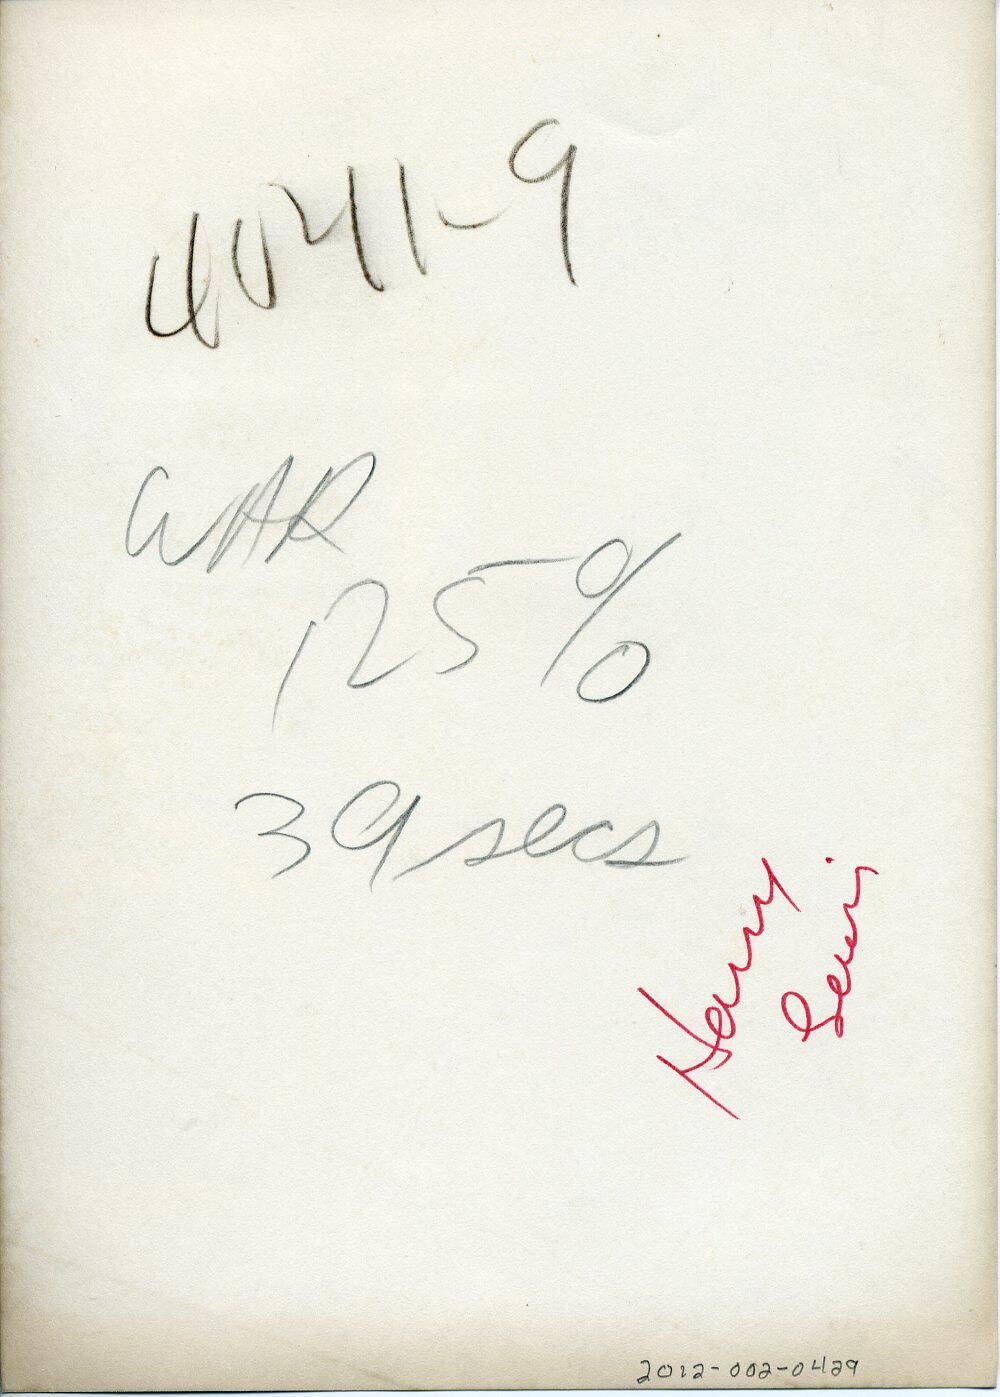 4041-9
WAR
125%
39 secs
Harry
2012-002-0429